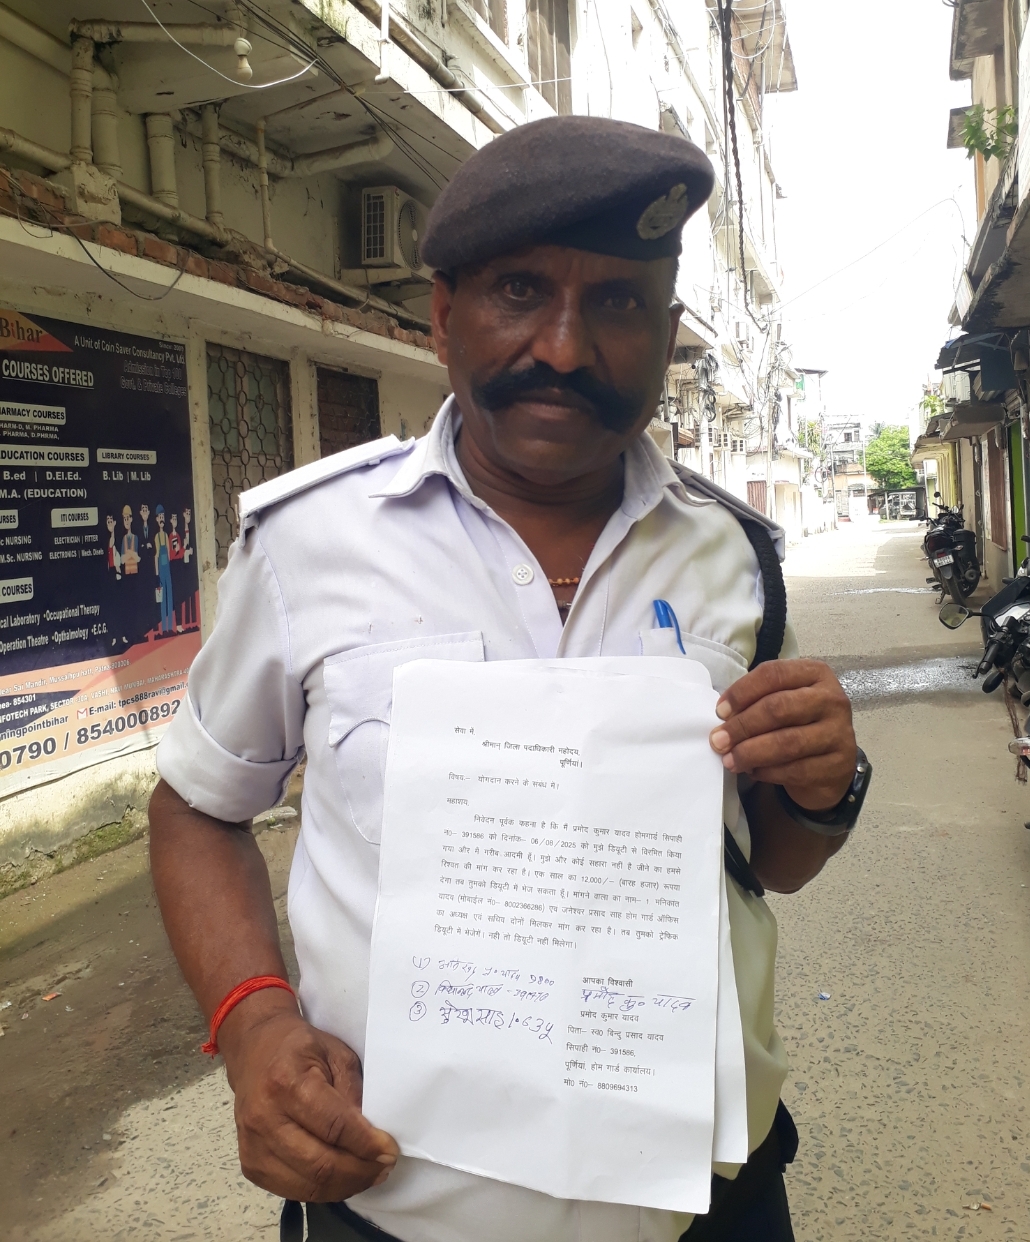 Bihar
A Unit of Coin Saver Consultancy Pvt. Ltd
Admission in Top
Govt. & Private Colleges
COURSES OFFERED
HARMACY COURSES
PHARM-D, M. PHARMA
PHARMA, D.PHRMA,
EDUCATION COURSES
LIBRARY COURSES
B.ed | D.El.Ed.
B. Lib | M. Lib
M.A. (EDUCATION)
ITI COURSES
ELECTRICIAN | FITTER
NURSING
ELECTRONICS |
M.Sc. NURSING
COURSES
cal Laboratory •Occupational Therapy
Operation Theatre •Opthalmology •E.C.G.
854301
INFOTECH PARK, SECTOR
ningpointbihar E-mail: tpcs888ravi@gmail
0790 / 854000892
सेवा में,
श्रीमान् जिला पदाधिकारी महोदय,
पूर्णियां।
विषय:- योगदान करने के संबंध में।
महाशय,
निवेदन पूर्वक कहना है कि मैं प्रमोद कुमार यादव होमगार्ड सिपाही
न0- 391586 को दिनांक- 06/08/2025 को मुझे डियुटी से विरमित किया
गया और मैं गरीब आदमी हूँ। मुझे और कोई सहारा नहीं है जीने का हमसे
रिश्वत की मांग कर रहा है। एक साल का 12,000/- (बारह हजार) रूपया
देगा तब तुमको डियुटी में भेज सकता हूँ। मांगने वाला का नाम- 1 मनिकांत
यादव (मोबाईल नं0- 8002366286) एवं जनेश्वर प्रसाद साह होम गार्ड ऑफिस
का अध्यक्ष एवं सचिव दोनों मिलकर मांग कर रहा है। तब तुमको ट्रैफिक
डियुटी में भेजेगें। नहीं तो डियुटी नहीं मिलेगा।
आपका विश्वासी
प्रमोद कु० यादव
प्रमोद कुमार यादव
पिता- स्व0 बिन्दु प्रसाद यादव
सिपाही न0- 391586,
पूर्णियां, होम गार्ड कार्यालय।
मो0 नं0- 8809694313
①
②
③